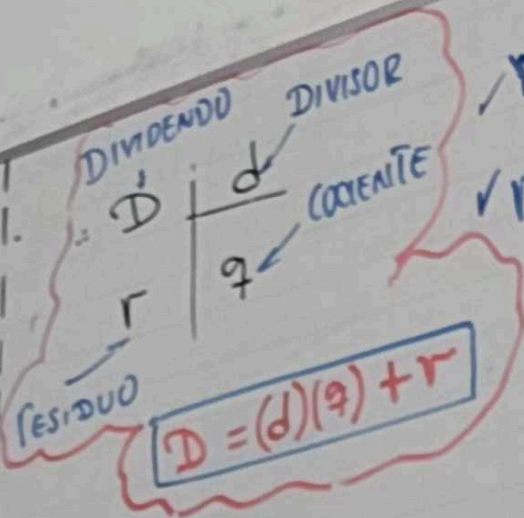 DIVIDENDO DIVISOR
D d
COCIENTE
r q
RESIDUO
D = (d)(q) + r